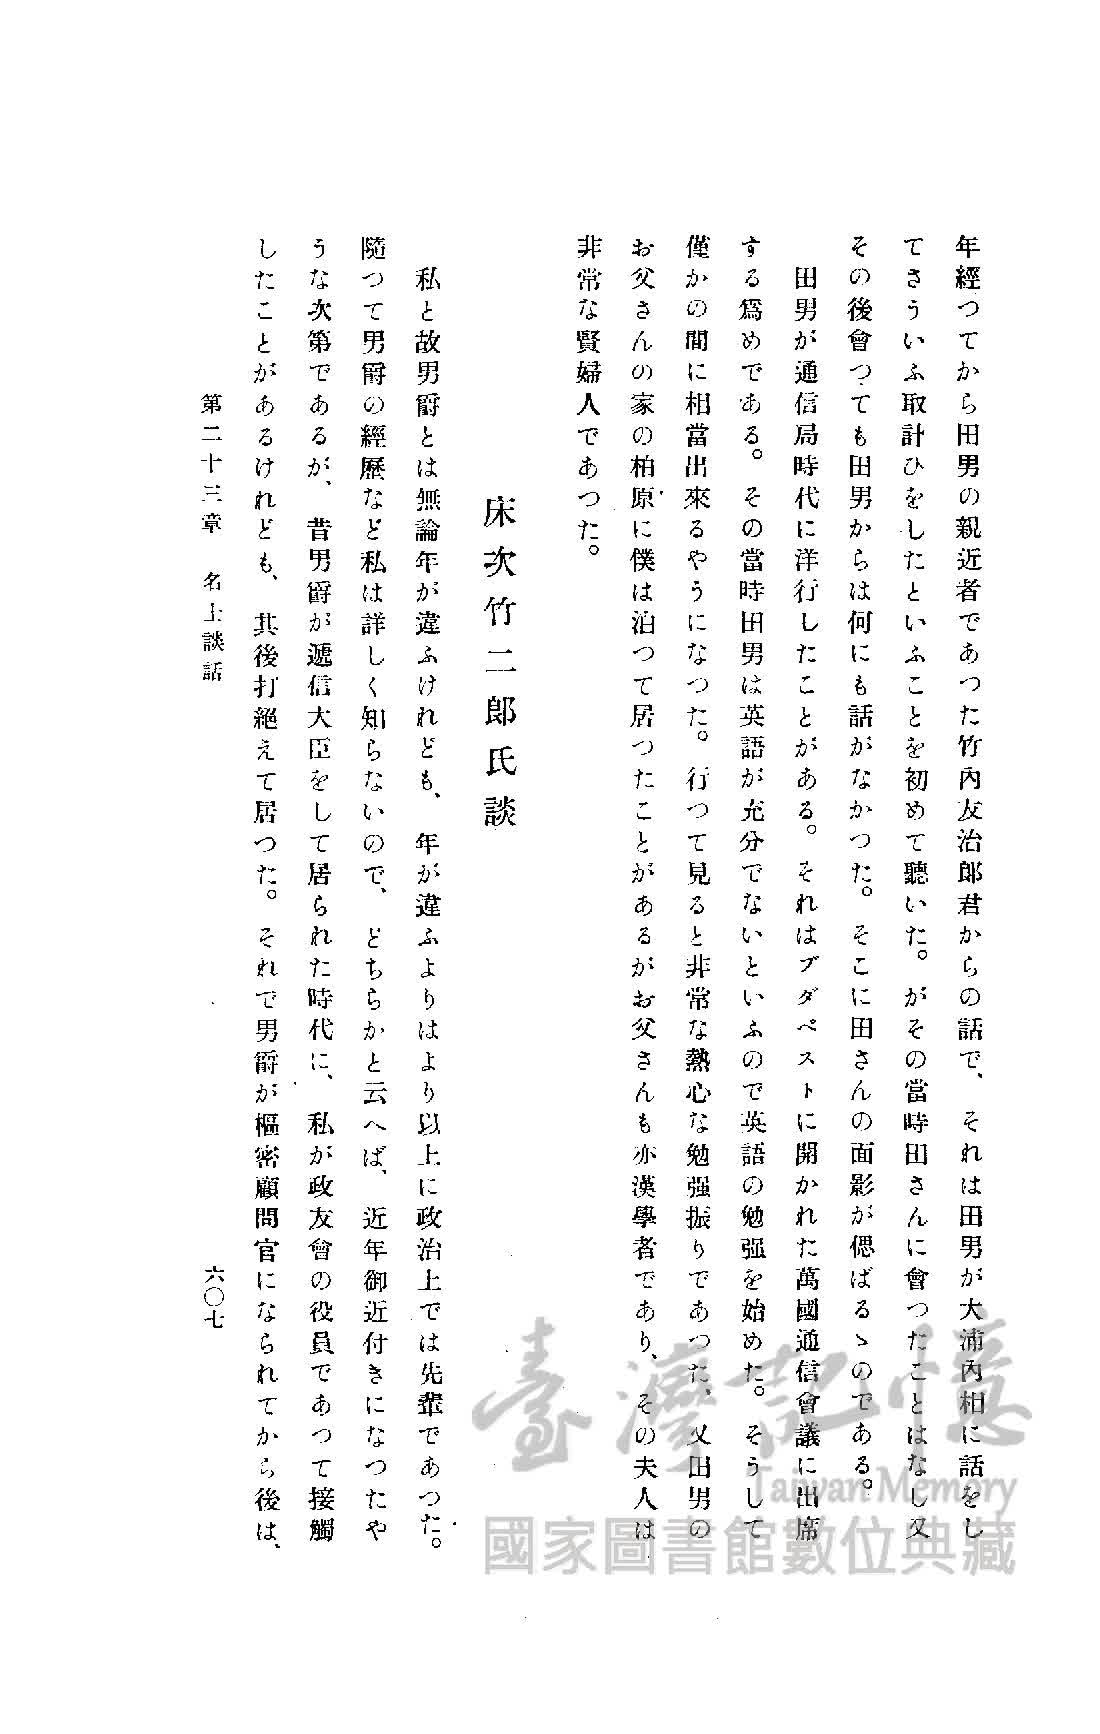 年經つてから田男の親近者であつた竹內友治郎君からの話で、それは田男が大浦內相に話をし
てさういふ取計ひをしたといふことを初めて聽いた。がその當時田さんに會つたことはなし又
その後會つても田男からは何にも話がなかつた。そこに田さんの面影が偲ばるゝのである。
田男が通信局時代に洋行したことがある。それはブダペストに開かれた萬國通信會議に出席
する爲めである。その當時田男は英語が充分でないといふので英語の勉强を始めた。そうして
僅かの間に相當出來るやうになつた。行つて見ると非常な熱心な勉强振りであつた、又田男の
お父さんの家の柏原に僕は泊つて居つたことがあるがお父さんも亦漢學者であり、その夫人は
非常な賢婦人であつた。
床次竹二郎氏談
私と故男爵とは無論年が違ふけれども、年が違ふよりはより以上に政治上では先輩であつた。
隨つて男爵の經歷など私は詳しく知らないので、どちらかと云へば、近年御近付きになつたや
うな次第であるが、昔男爵が遞信大臣をして居られた時代に、私が政友會の役員であつて接觸
したことがあるけれども、其後打絕えて居つた。それで男爵が樞密顧問官になられてから後は、
第二十三章 名士談話
六〇七
臺灣記憶
Taiwan Memory
國家圖書館數位典藏